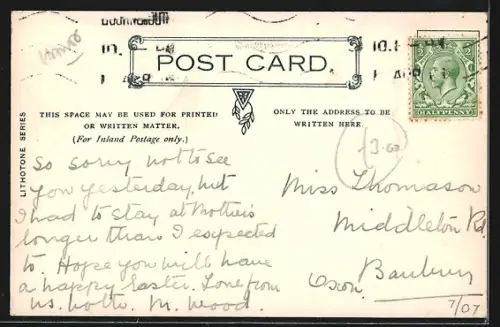 10.
10.
APR
POST CARD.
HALFPENNY
THIS SPACE MAY BE USED FOR PRINTED
OR WRITTEN MATTER,
(For Inland Postage only.)
ONLY THE ADDRESS TO BE
WRITTEN HERE.
LITHOTONE SERIES
So sorry not to see
you yesterday, but
I had to stay at Mothers
longer than I expected
to. Hope you will have
a happy Easter. Love from
us both. M. Wood.
Miss Thomason
Middleton Rd
Banbury
Oxon.
7/07